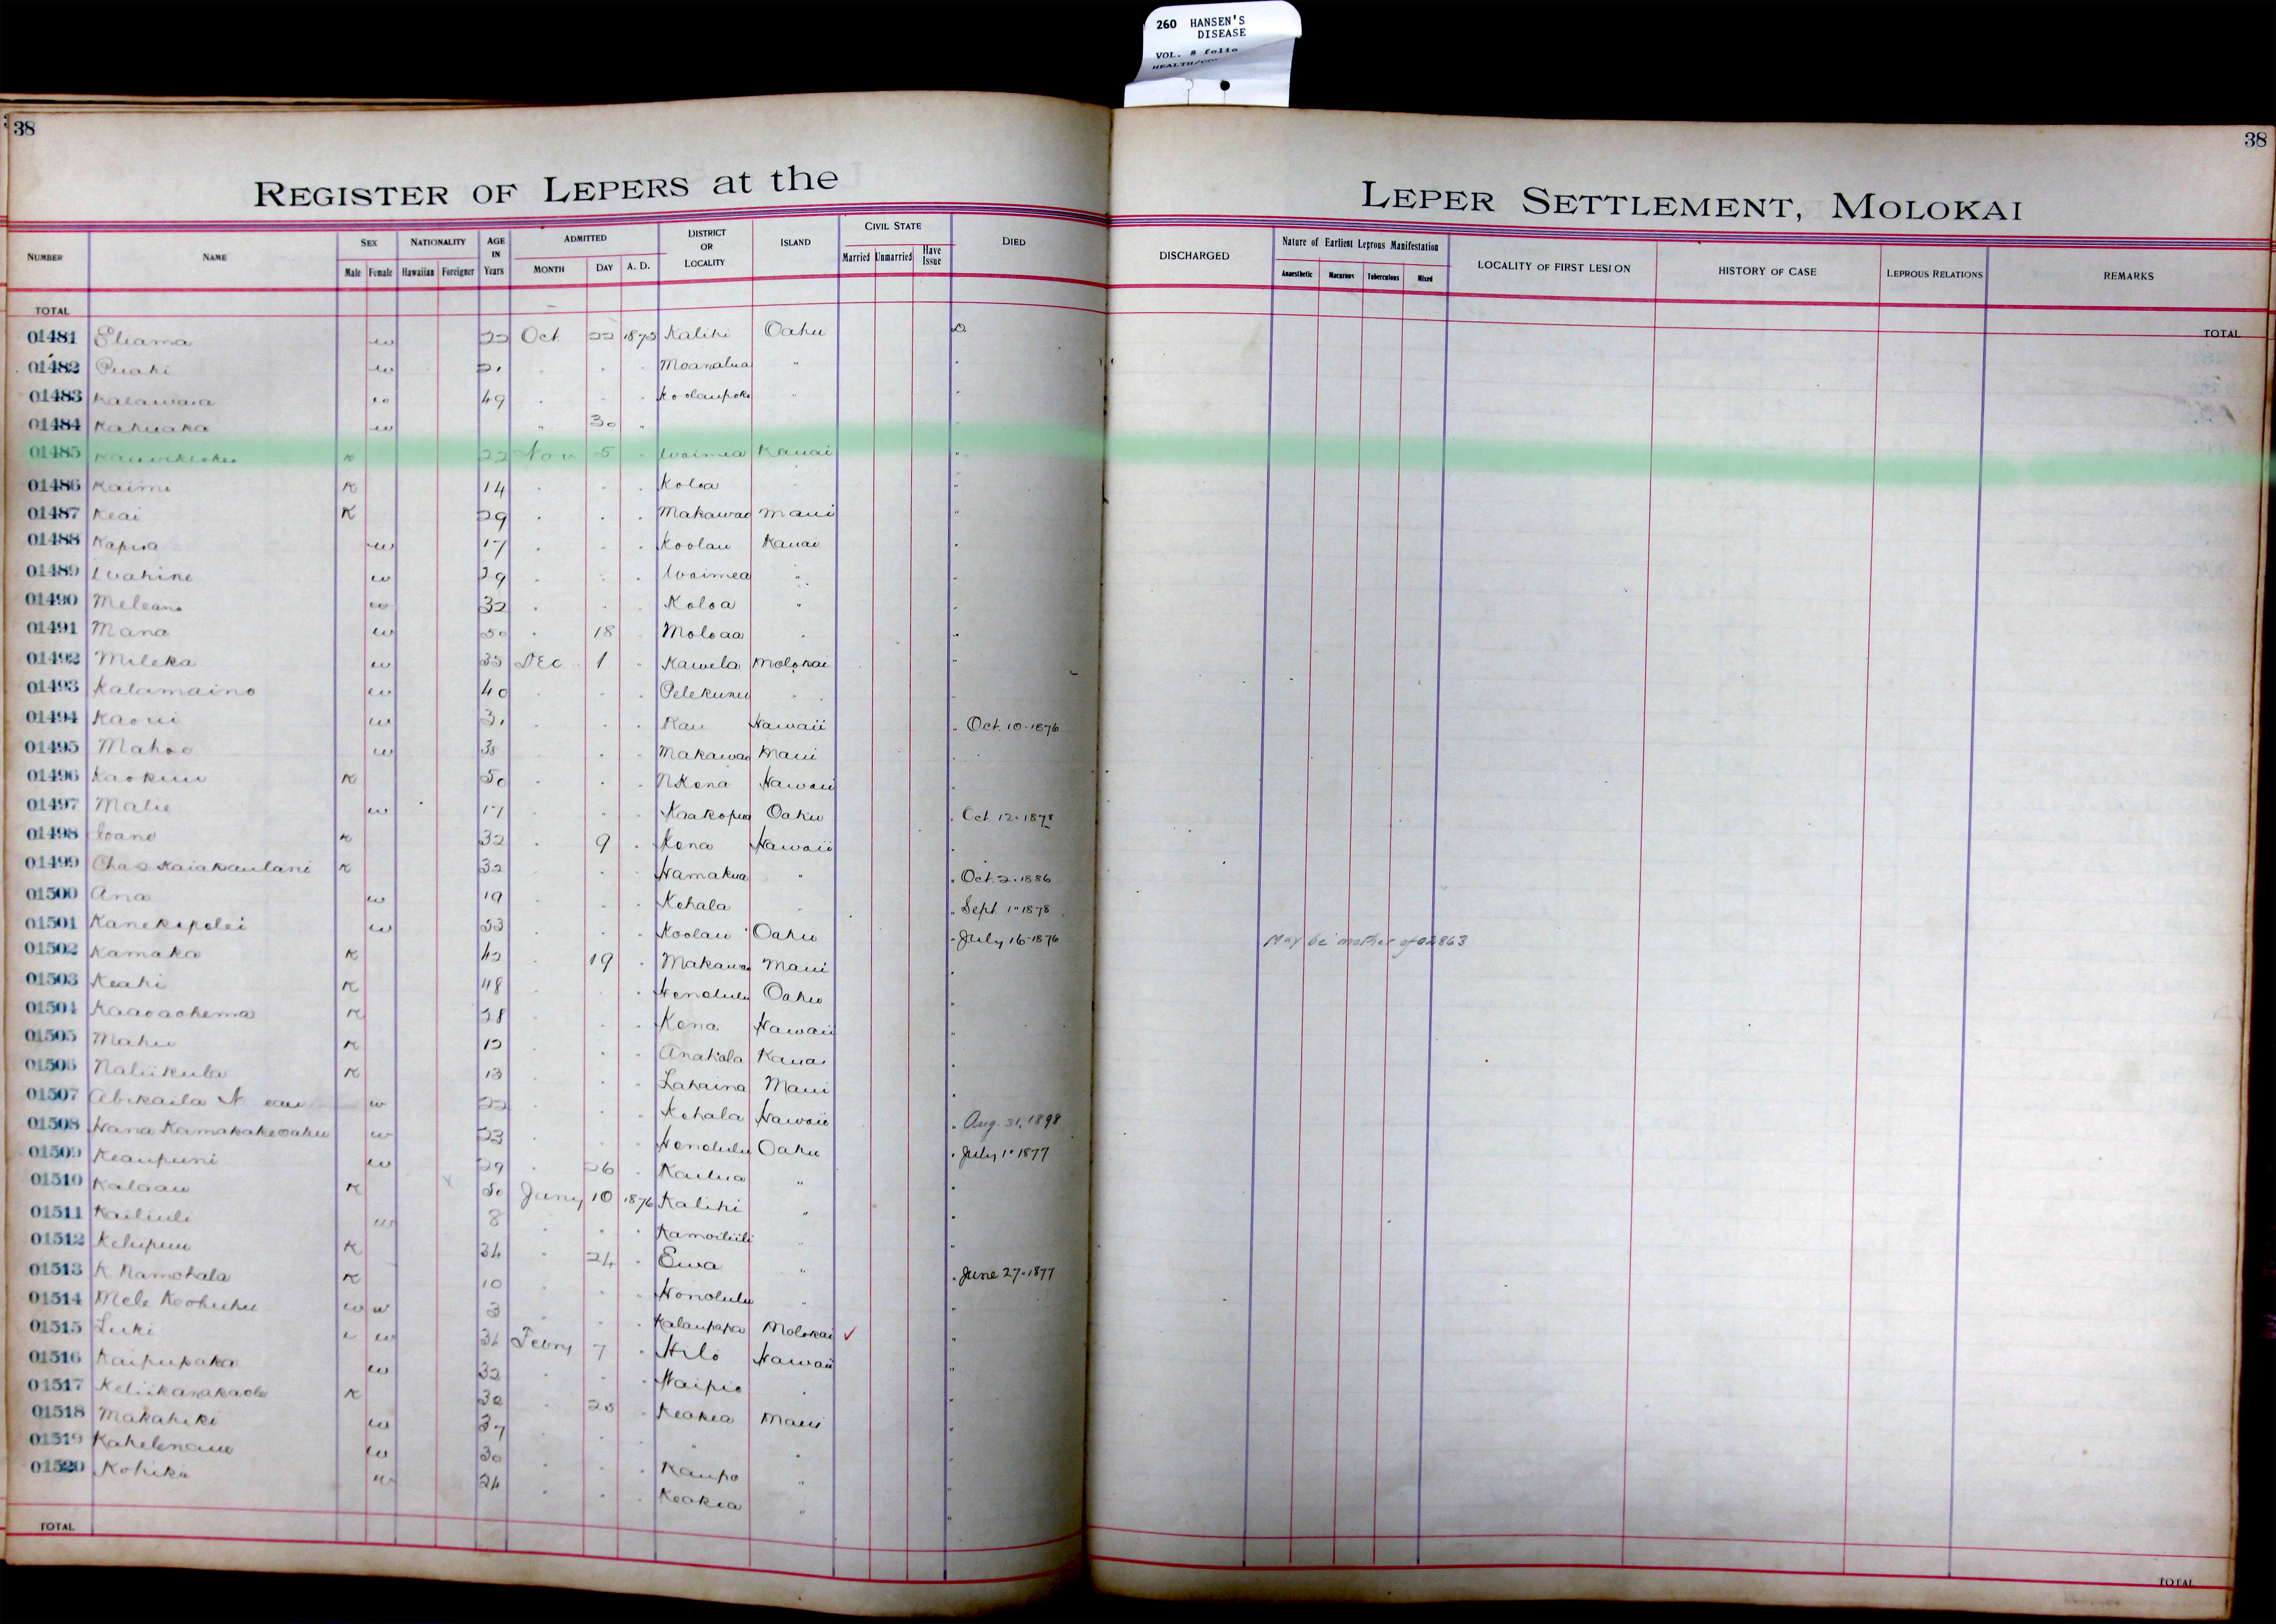 260 HANSEN'S
DISEASE
VOL. 8 folio
38
38
REGISTER OF LEPERS at the LEPER SETTLEMENT, MOLOKAI
NUMBER NAME SEX Male Female NATIONALITY Hawaiian Foreigner AGE IN Years ADMITTED MONTH DAY A. D. DISTRICT OR LOCALITY ISLAND CIVIL STATE Married Unmarried Have Issue DIED DISCHARGED Nature of Earliest Leprous Manifestation Anaesthetic Macurous Tuberculous Mixed LOCALITY OF FIRST LESION HISTORY OF CASE LEPROUS RELATIONS REMARKS
TOTAL TOTAL
01481 Eliama w 22 Oct 22 1875 Kalihi Oahu D
01482 Puahi w Moanalua "
01483 Kalawaia w 49 Koolaupoko "
01484 Kahuaka w " 30 "
01485 K 22 Nov 5 Waimea Kauai "
01486 Kaimi K 14 Koloa "
01487 Keai K 29 Makawao Maui "
01488 Kapua w 17 Koolau Kauai "
01489 Wahine w 29 Waimea "
01490 Meleana w 32 Koloa "
01491 Mana w 50 18 Moloaa "
01492 Mileka w 35 Dec 1 Kawela Molokai "
01493 Kalamaino w 40 Pelekunu "
01494 Kaoui w 31 Kau Hawaii " Oct. 10-1876
01495 Mahoe w 38 Makawao Maui
01496 Kaokuu K 50 N Kona Hawaii
01497 Malie w 17 Kaakopua Oahu " Oct 12-1878
01498 Ioane K 32 9 Kona Hawaii
01499 Chas Kaiakaulani K 32 Hamakua " " Oct. 2-1886
01500 Ana w 19 Kohala " Sept 1-1878
01501 Kanekapolei w 53 Koolau Oahu " July 16-1876 May be mother of 02863
01502 Kamaka K 42 19 Makawao Maui "
01503 Keahi K 48 Honolulu Oahu "
01504 Kaaoaohema K 28 Kona Hawaii "
01505 Mahu K 12 Anahola Kauai
01506 Naliikula K 13 Lahaina Maui
01507 Abikaila w 22 Kohala Hawaii " Aug. 31, 1898
01508 Hana Kamakakeoahu w 23 Honolulu Oahu " July 1-1877
01509 Keaupuni w 29 26 Kailua "
01510 Kalaau K 50 Jany 10 1876 Kalihi "
01511 Kailiuli w 8 Kamoiliili "
01512 Kelupuu K 34 24 Ewa " " June 27-1877
01513 K Namohala K 10 Honolulu "
01514 Mele Keohuhu w w 3 Kalaupapa Molokai ✓ "
01515 Luki w 34 Febry 7 Hilo Hawaii "
01516 Kaipupaka w 32 Waipio "
01517 Keliikanakaole K 30 Keokea Maui "
01518 Makahiki w 37 "
01519 Kahelenaue w 30 Kaupo "
01520 Kohiki w 24 Keokea "
TOTAL TOTAL